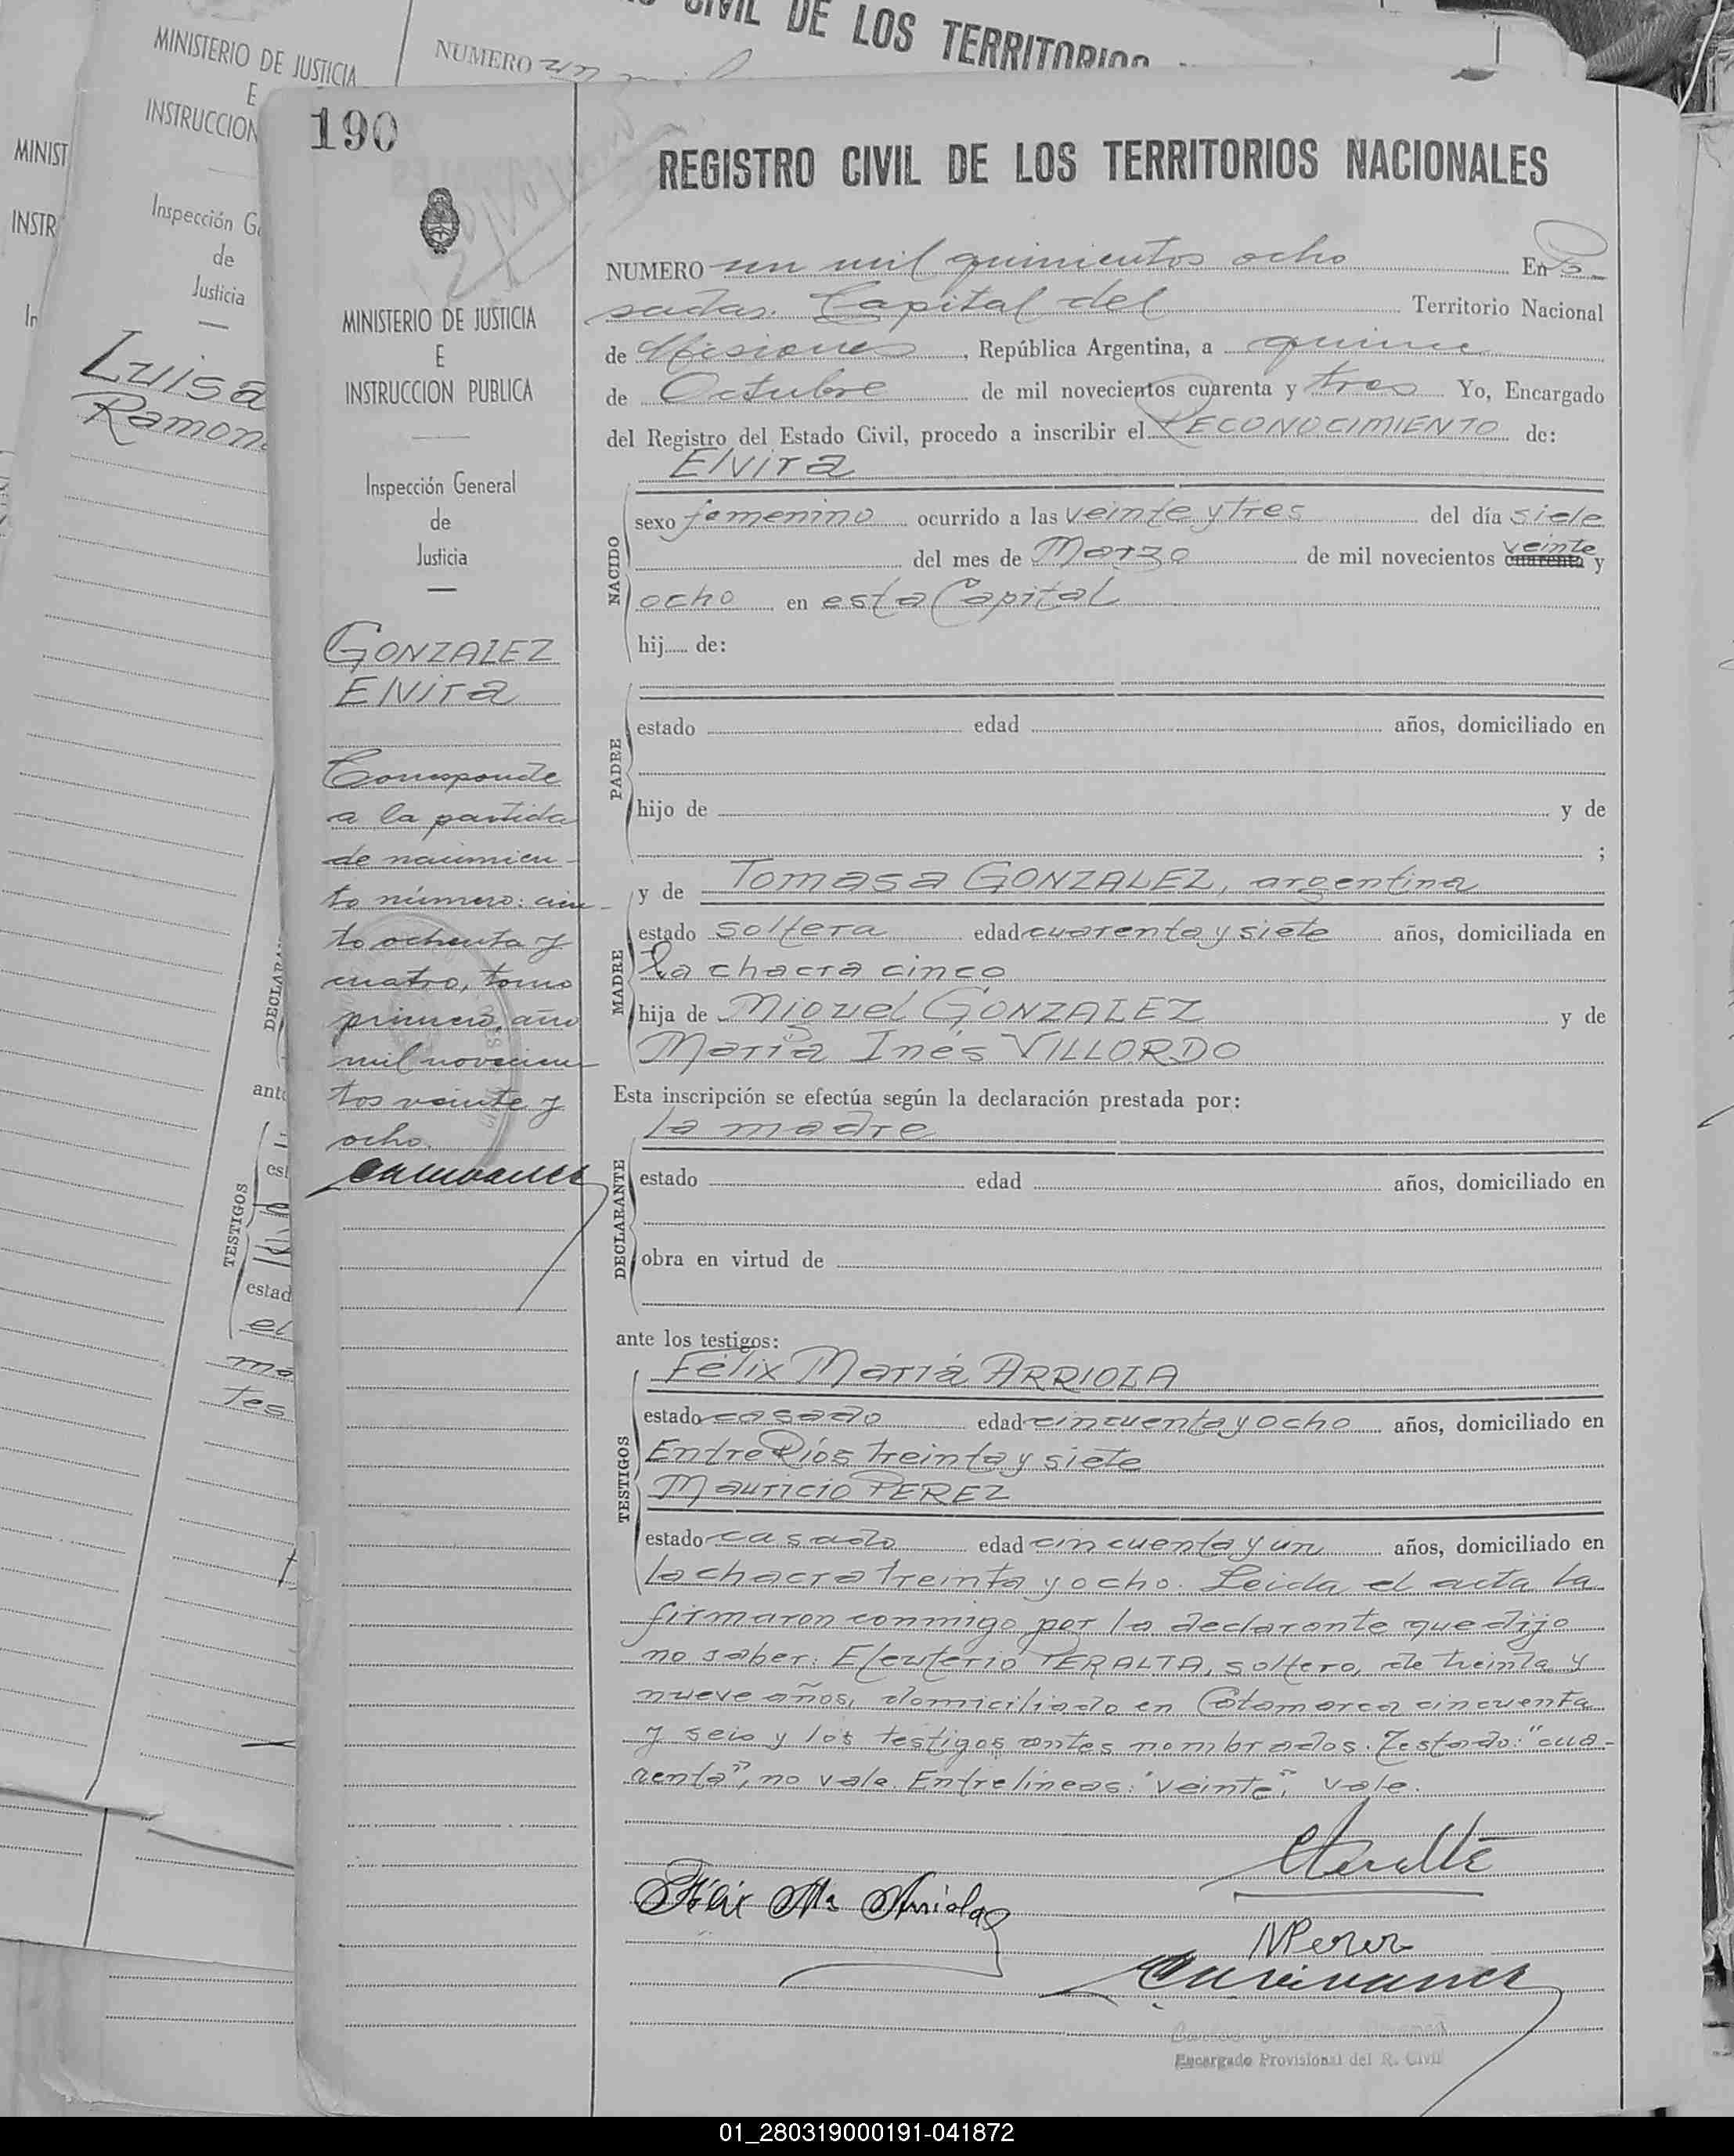 CIVIL DE LOS TERRITORIOS
MINISTERIO DE JUSTICIA
E
INSTRUCCION
NUMERO un mil
Inspección G
de
Justicia
MINIST
INSTR
In
Luisa
Ramon
DECLARA
ante
est
TESTIGOS
estad
el
ma
tes
190
MINISTERIO DE JUSTICIA
E
INSTRUCCION PUBLICA
Inspección General
de
Justicia
GONZALEZ
Elvira
Corresponde
a la partida
de nacimien-
to número: cien-
to ochenta y
cuatro, tomo
primero, año
mil novecien
tos veinte y
ocho.
REGISTRO CIVIL DE LOS TERRITORIOS NACIONALES
NUMERO un mil quinientos ocho En Po-
sadas. Capital del Territorio Nacional
de Misiones, República Argentina, a quince
de Octubre de mil novecientos cuarenta y tres Yo, Encargado
del Registro del Estado Civil, procedo a inscribir el RECONOCIMIENTO de:
Elvira
NACIDO
sexo femenino ocurrido a las veinte y tres del día siete
del mes de Marzo de mil novecientos cuarenta veinte y
ocho en esta Capital
hij de:
PADRE
estado edad años, domiciliado en
hijo de y de
;
y de Tomasa GONZALEZ, argentina
MADRE
estado soltera edad cuarenta y siete años, domiciliada en
la chacra cinco
hija de Miguel GONZALEZ y de
María Inés VILLORDO
Esta inscripción se efectúa según la declaración prestada por:
la madre
DECLARANTE
estado edad años, domiciliado en
obra en virtud de
ante los testigos:
TESTIGOS
Félix María ARRIOLA
estado casado edad cincuenta y ocho años, domiciliado en
Entre Ríos treinta y siete
Mauricio PEREZ
estado casado edad cincuenta y un años, domiciliado en
la chacra treinta y ocho. Leida el acta la
firmaron conmigo por la declarante que dijo
no saber: Eleuterio PERALTA, soltero, de treinta y
nueve años, domiciliado en Catamarca cincuenta
y seis y los testigos antes nombrados. Testado: "cua-
renta", no vale. Entrelíneas: "veinte", vale.
Félix Ma Arriola
EPeralta
MPerez
Encargado Provisional del R. Civil
01_280319000191-041872